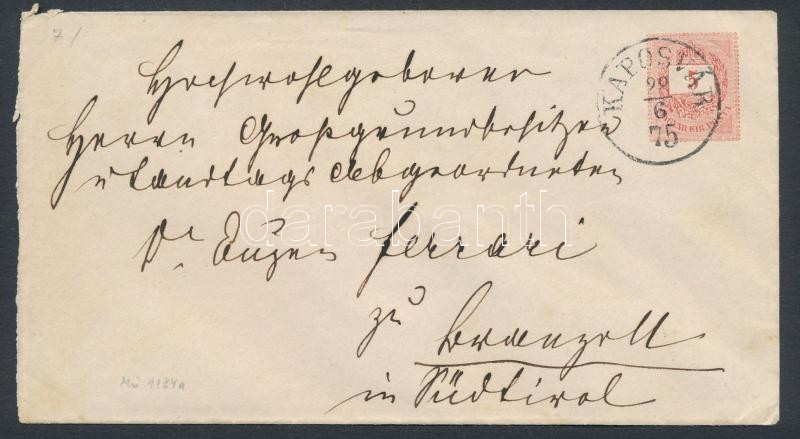 7/
Hochwohlgeboren
Herrn Großgrundbesitzer
u Landtags Abgeordneten
Dr Eugen Ferrari
zu Branzoll
in Südtirol
KAPOSVÁR
29
6
75
5
darabanth